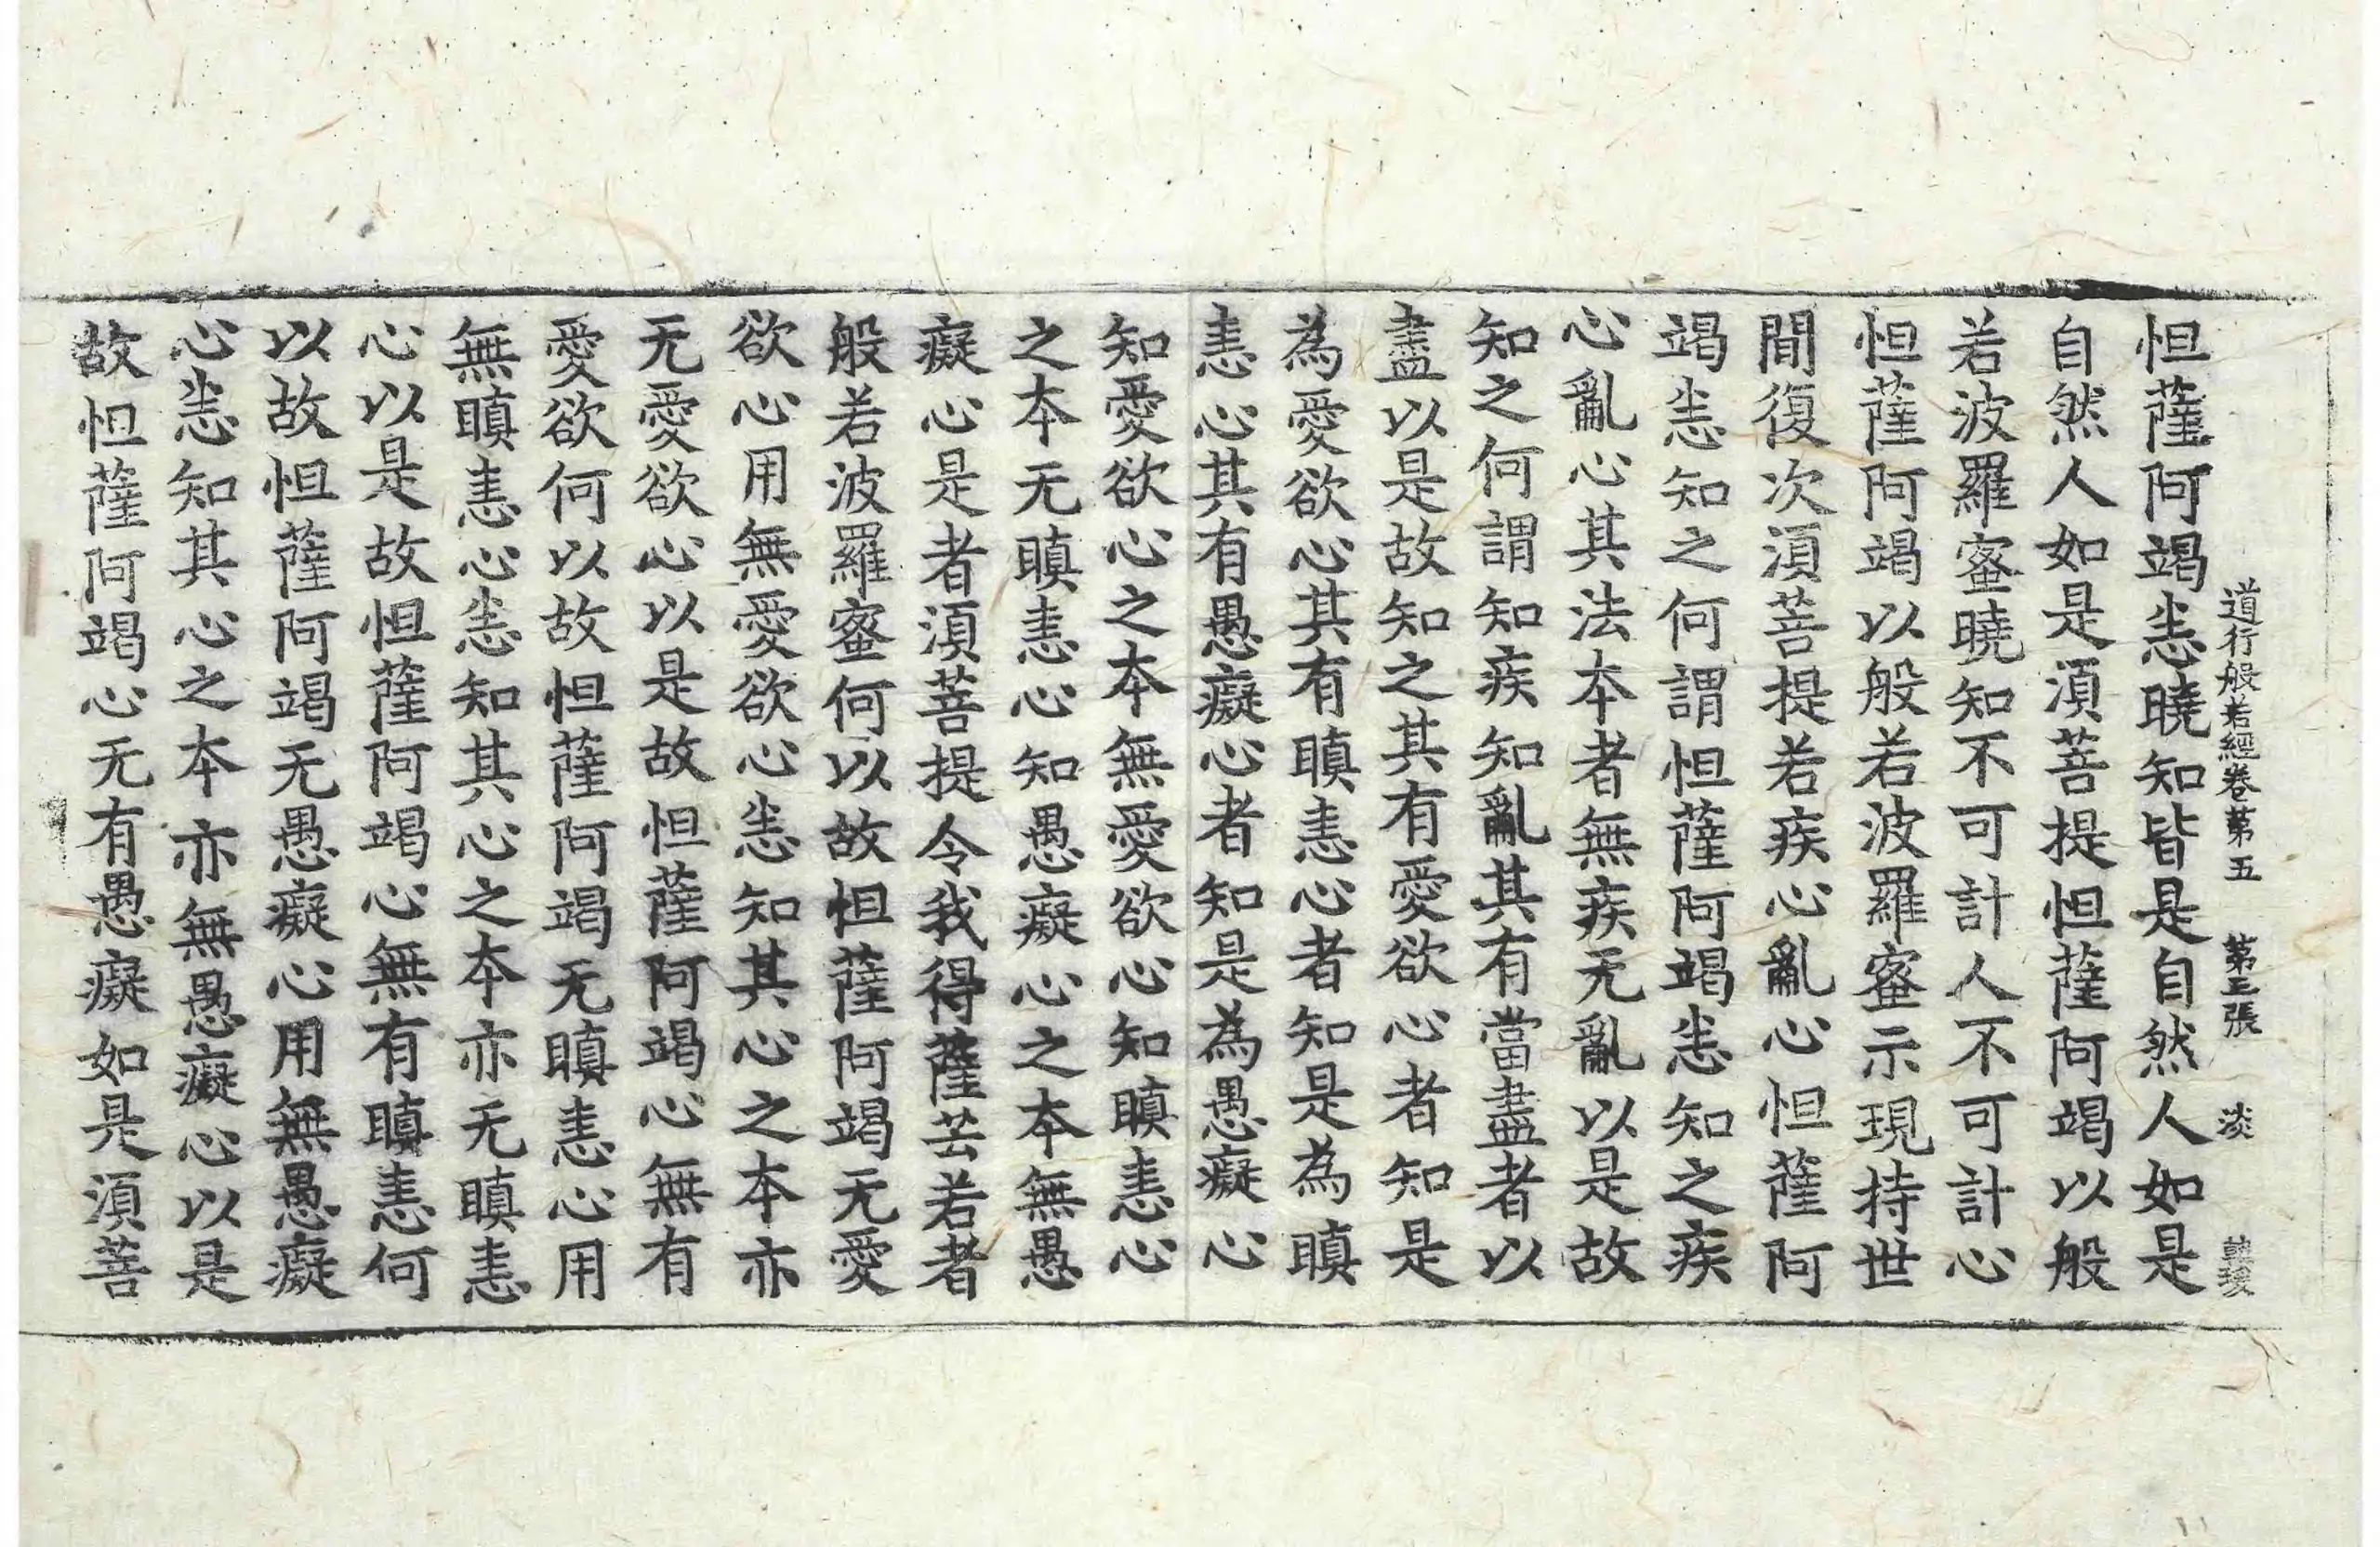 道行般若經卷第五 第三張 淡
怛薩阿竭悉曉知皆是自然人如是
自然人如是須菩提怛薩阿竭以般
若波羅蜜曉知不可計人不可計心
怛薩阿竭以般若波羅蜜示現持世
間復次須菩提若疾心亂心怛薩阿
竭悉知之何謂怛薩阿竭悉知之疾
心亂心其法本者無疾无亂以是故
知之何謂知疾知亂其有當盡者以
盡以是故知之其有愛欲心者知是
為愛欲心其有瞋恚心者知是為瞋
恚心其有愚癡心者知是為愚癡心
知愛欲心之本無愛欲心知瞋恚心
之本无瞋恚心知愚癡心之本無愚
癡心是者須菩提令我得薩芸若者
般若波羅蜜何以故怛薩阿竭无愛
欲心用無愛欲心悉知其心之本亦
无愛欲心以是故怛薩阿竭心無有
愛欲何以故怛薩阿竭无瞋恚心用
無瞋恚心悉知其心之本亦无瞋恚
心以是故怛薩阿竭心無有瞋恚何
以故怛薩阿竭无愚癡心用無愚癡
心悉知其心之本亦無愚癡心以是
故怛薩阿竭心无有愚癡如是須菩